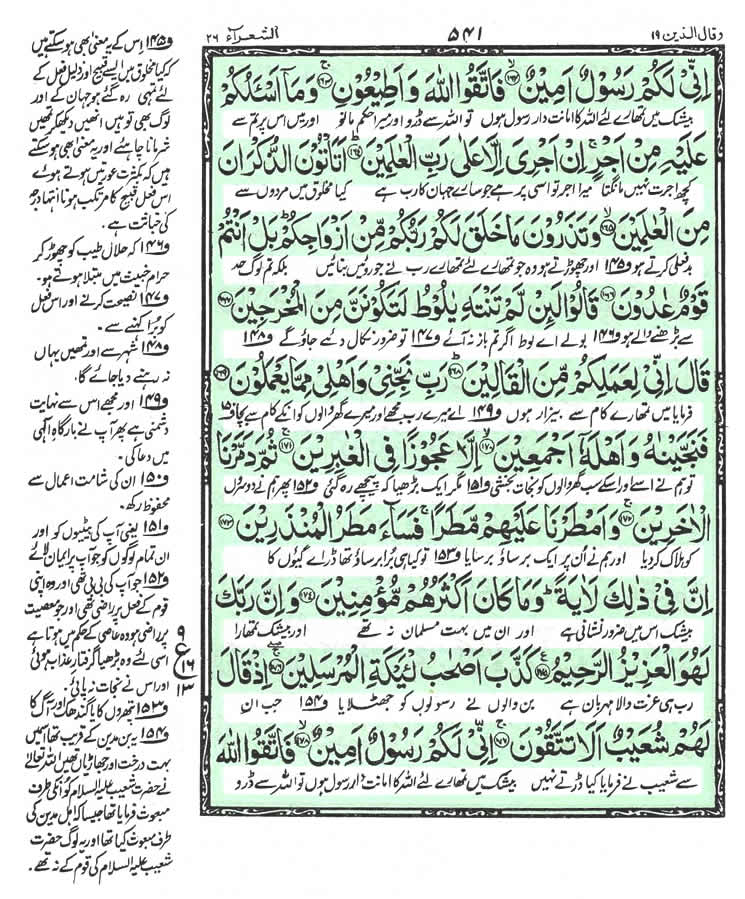 وقال الذین ۱۹
۵۴۱
الشعرآء ۲۶
اِنِّیْ لَكُمْ رَسُوْلٌ اَمِیْنٌ ﴿۱۶۲﴾ فَاتَّقُوا اللّٰهَ وَ اَطِیْعُوْنِ ﴿۱۶۳﴾ وَ مَاۤ اَسْـَٔلُكُمْ
بیشک میں تمہارے لئے اللہ کا امانت دار رسول ہوں تو اللہ سے ڈرو اور میرا حکم مانو اور میں اس پر تم سے
عَلَیْهِ مِنْ اَجْرٍ ۚ اِنْ اَجْرِیَ اِلَّا عَلٰى رَبِّ الْعٰلَمِیْنَ ﴿۱۶۴﴾ اَتَاْتُوْنَ الذُّكْرَانَ
کچھ اجرت نہیں مانگتا میرا اجر تو اسی پر ہے جو سارے جہان کا رب ہے کیا مخلوق میں مردوں سے
مِنَ الْعٰلَمِیْنَ ﴿۱۶۵﴾ وَ تَذَرُوْنَ مَا خَلَقَ لَكُمْ رَبُّكُمْ مِّنْ اَزْوَاجِكُمْ ؕ بَلْ اَنْتُمْ
بدفعلی کرتے ہو و۱۴۵ اور چھوڑتے ہو وہ جو تمہارے لئے تمہارے رب نے جوروئیں بنائیں بلکہ تم لوگ حد
قَوْمٌ عٰدُوْنَ ﴿۱۶۶﴾ قَالُوْا لَىِٕنْ لَّمْ تَنْتَهِ یٰلُوْطُ لَتَكُوْنَنَّ مِنَ الْمُخْرَجِیْنَ ﴿۱۶۷﴾
سے بڑھنے والے ہو و۱۴۶ بولے اے لوط اگر تم باز نہ آئے و۱۴۷ تو ضرور نکال دئے جاؤ گے و۱۴۸
قَالَ اِنِّیْ لِعَمَلِكُمْ مِّنَ الْقَالِیْنَ ﴿۱۶۸﴾ رَبِّ نَجِّنِیْ وَ اَهْلِیْ مِمَّا یَعْمَلُوْنَ ﴿۱۶۹﴾
فرمایا میں تمہارے کام سے بیزار ہوں و۱۴۹ اے میرے رب مجھے اور میرے گھر والوں کو انکے کام سے بچا و۱۵۰
فَنَجَّیْنٰهُ وَ اَهْلَهٗۤ اَجْمَعِیْنَ ﴿۱۷۰﴾ اِلَّا عَجُوْزًا فِی الْغٰبِرِیْنَ ﴿۱۷۱﴾ ثُمَّ دَمَّرْنَا
تو ہم نے اسے اور اسکے سب گھر والوں کو نجات بخشی و۱۵۱ مگر ایک بڑھیا کہ پیچھے رہ گئی و۱۵۲ پھر ہم نے دوسروں
الْاٰخَرِیْنَ ﴿۱۷۲﴾ وَ اَمْطَرْنَا عَلَیْهِمْ مَّطَرًا ۚ فَسَآءَ مَطَرُ الْمُنْذَرِیْنَ ﴿۱۷۳﴾
کو ہلاک کردیا اور ہم نے ان پر ایک برساؤ برسایا و۱۵۳ تو کیا ہی برا برساؤ تھا ڈرائے گیوں کا
اِنَّ فِیْ ذٰلِكَ لَاٰیَةً ؕ وَ مَا كَانَ اَكْثَرُهُمْ مُّؤْمِنِیْنَ ﴿۱۷۴﴾ وَ اِنَّ رَبَّكَ
بیشک اس میں ضرور نشانی ہے اور ان میں بہت مسلمان نہ تھے اور بیشک تمہارا
لَهُوَ الْعَزِیْزُ الرَّحِیْمُ ﴿۱۷۵﴾ كَذَّبَ اَصْحٰبُ لْـَٔیْكَةِ الْمُرْسَلِیْنَ ﴿۱۷۶﴾ اِذْ قَالَ
رب ہی عزت والا مہربان ہے بن والوں نے رسولوں کو جھٹلایا و۱۵۴ جب ان
لَهُمْ شُعَیْبٌ اَلَا تَتَّقُوْنَ ﴿۱۷۷﴾ اِنِّیْ لَكُمْ رَسُوْلٌ اَمِیْنٌ ﴿۱۷۸﴾ فَاتَّقُوا اللّٰهَ
سے شعیب نے فرمایا کیا ڈرتے نہیں بیشک میں تمہارے لئے اللہ کا امانت دار رسول ہوں تو اللہ سے ڈرو
و۱۴۵ اس کے یہ معنیٰ بھی ہوسکتے ہیں
کہ کیا مخلوق میں ایسے قبیح اور ذلیل فعل کے
لئے تمہی رہ گئے ہو جہان کے اور
لوگ بھی تو ہیں انھیں دیکھکر تمھیں
شرمانا چاہئے اور یہ معنیٰ بھی ہوسکتے
ہیں کہ بکثرت عورتیں ہوتے ہوئے
اس فعل قبیح کا مرتکب ہونا انتہا درجہ
کی خباثت ہے۔
و۱۴۶ کہ حلال طیب کو چھوڑ کر
حرام خبیث میں مبتلا ہوتے ہو۔
و۱۴۷ نصیحت کرنے اور اس فعل
کو برا کہنے سے۔
و۱۴۸ شہر سے اور تمھیں یہاں
نہ رہنے دیا جائے گا۔
و۱۴۹ اور مجھے اس سے نہایت
دشمنی ہے پھر آپ نے بارگاہِ الٰہی
میں دعا کی۔
و۱۵۰ ان کی شامت اعمال سے
محفوظ رکھ۔
و۱۵۱ یعنی آپ کی بیٹیوں کو اور
ان تمام لوگوں کو جو آپ پر ایمان لائے
و۱۵۲ جو آپ کی بی بی تھی اور وہ اپنی
قوم کے فعل پر راضی تھی اور جو معصیت
پر راضی ہو وہ عاصی کے حکم میں ہوتا ہے
اسی لئے وہ بڑھیا گرفتار عذاب ہوئی
اور اس نے نجات نہ پائی۔
و۱۵۳ پتھروں کا یا گندھک اور آگ کا
و۱۵۴ یہ بن مدین کے قریب تھا اسمیں
بہت درخت اور جھاڑیاں تھیں اللہ تعالیٰ
نے حضرت شعیب علیہ السلام کو انکی طرف
مبعوث فرمایا تھا جیسا کہ اہل مدین کی
طرف مبعوث کیا تھا اور یہ لوگ حضرت
شعیب علیہ السلام کی قوم کے نہ تھے۔
۹
ع
۱۶
۱۳